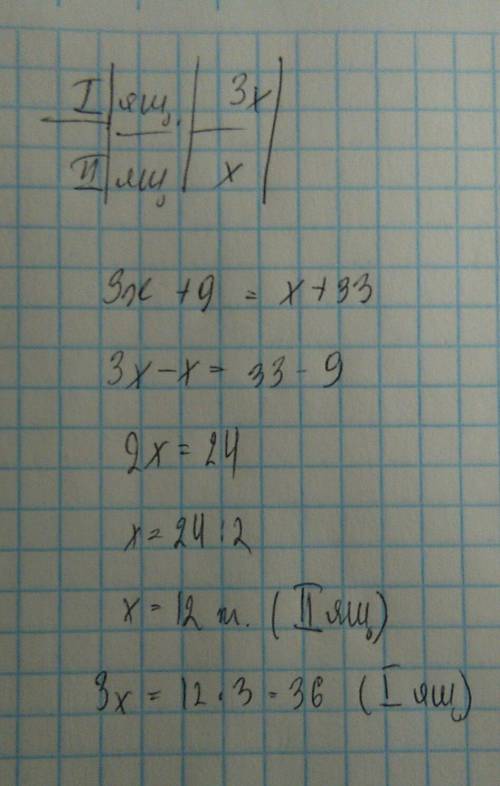 I ящ. 3x
II ящ x
3x + 9 = x + 33
3x - x = 33 - 9
2x = 24
x = 24 : 2
x = 12 т. (II ящ)
3x = 12 · 3 = 36 (I ящ)